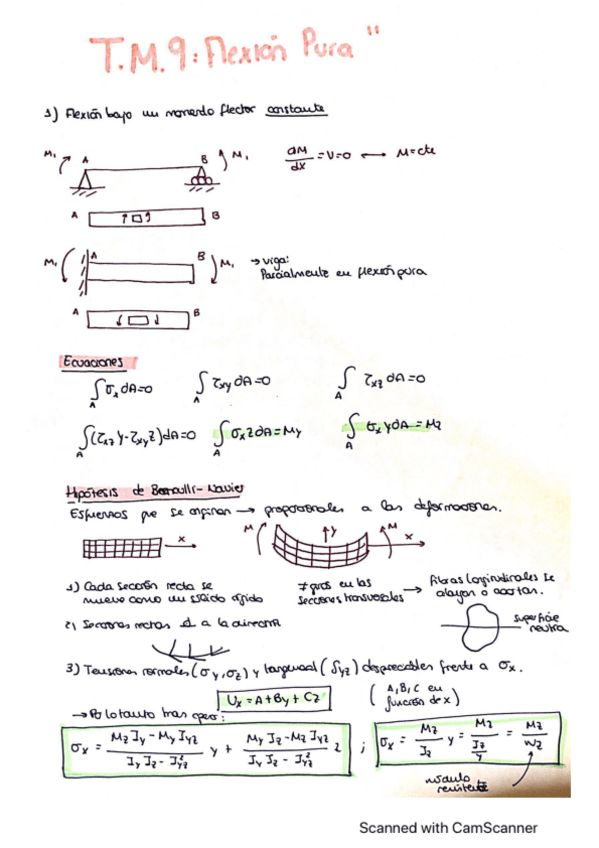 T.M.9: Flexión Pura "
1) Flexión bajo un momento flector constante
M₁ A B M₁ dM/dx = V = 0 ⟷ M = cte
A B
M₁ A B M₁ → viga:
Parcialmente en flexión pura
A B
Ecuaciones
∫_A σx dA = 0 ∫_A τxy dA = 0 ∫_A τxz dA = 0
∫_A (τxz y - τxy z) dA = 0 ∫_A σx z dA = My ∫_A σx y dA = Mz
Hipótesis de Bernoulli - Navier
Esfuerzos que se originan → proporcionales a las deformaciones.
x M y M x
1) Cada sección recta se mueve como un sólido rígido
≠ giros en las secciones transversales → fibras longitudinales se alargan o acortan.
2) Secciones rectas a la
superficie neutra
3) Tensiones normales (σy, σz) y tangencial (yz) despreciables frente a σx.
Ux = A + By + Cz
(A, B, C en función de x)
→ Por lo tanto tras oper:
σx = (Mz Iy - My Iyz)/(Iy Iz - Iyz²) y + (My Iz - Mz Iyz)/(Iy Iz - Iyz²) z ; σx = Mz/Iz y = Mz/(Iz/y) = Mz/Wz
módulo resistente
Scanned with CamScanner